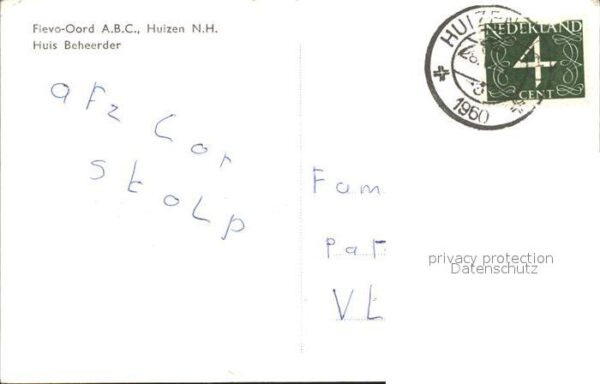 Flevo-Oord A.B.C., Huizen N.H.
Huis Beheerder
afz Cor
Stolp
HUIZEN
1960
NEDERLAND
4
CENT
Fam
pat
Vl
privacy protection
Datenschutz